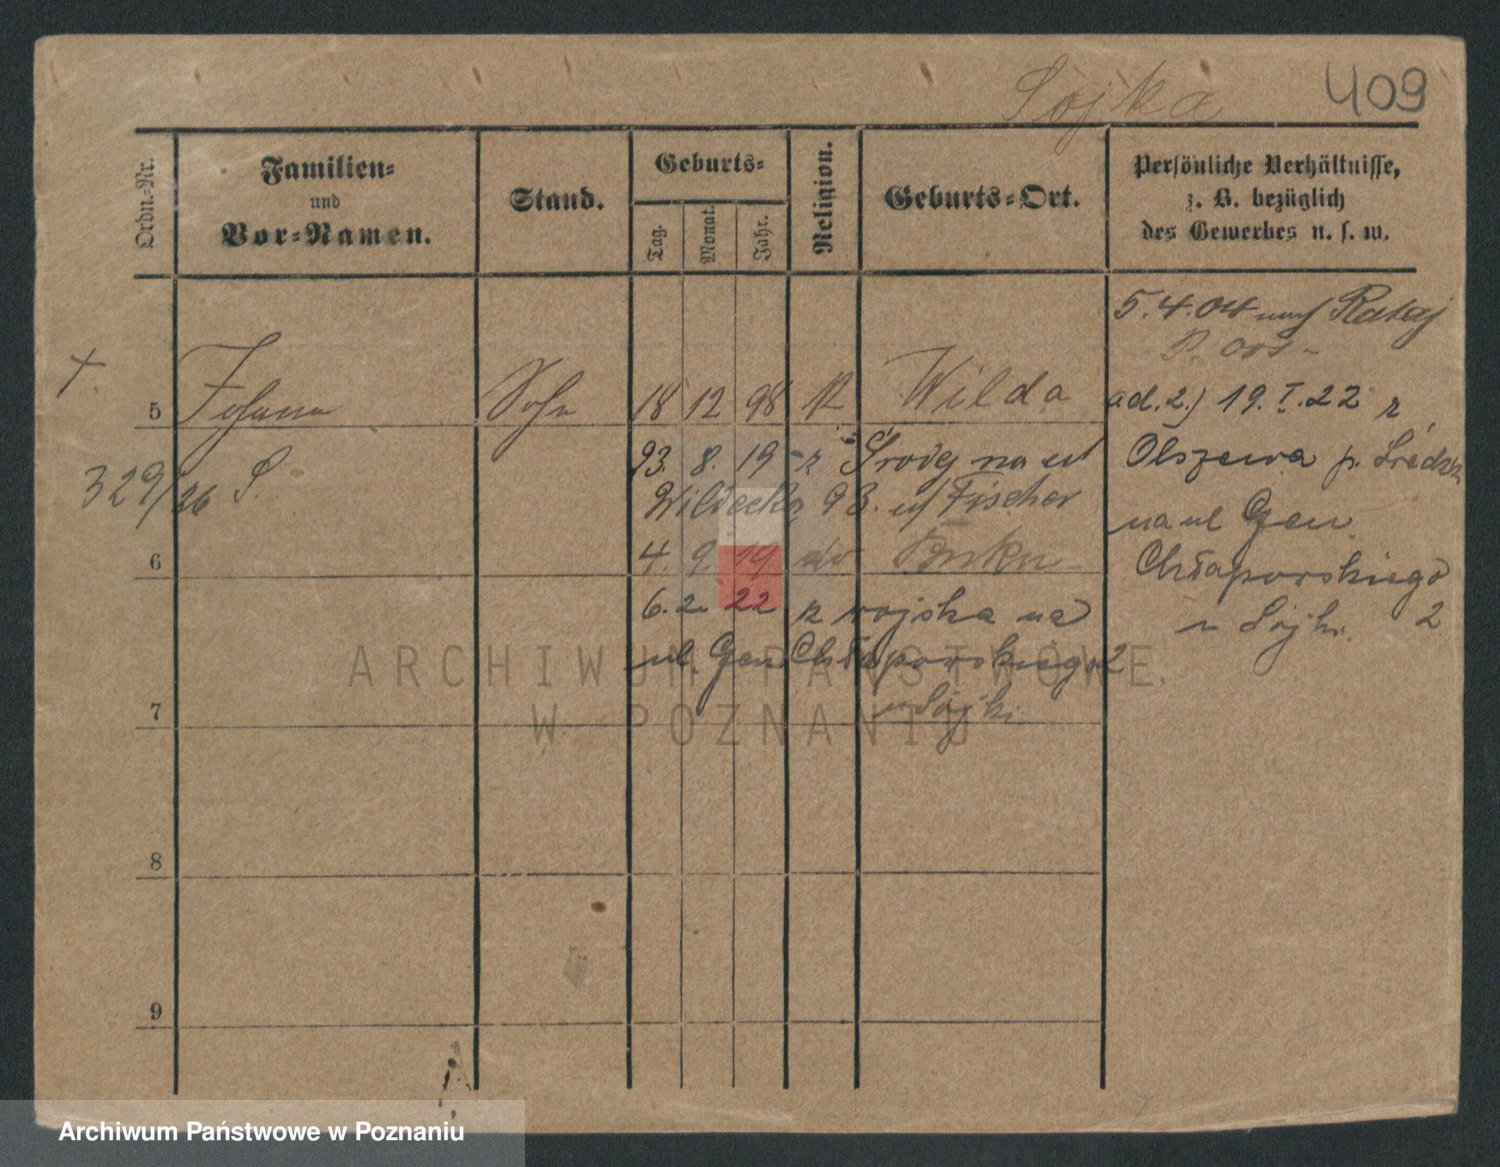 Sojka 409
Ordn.-Nr.
Familien-
und
Vor-Namen.
Stand.
Geburts-
Tag.
Monat.
Jahr.
Religion.
Geburts-Ort.
Persönliche Verhältnisse,
z. B. bezüglich
des Gewerbes u. s. w.
5.4.04 nach Rataj
†.
5 Johann Sohn 18 12 98 K Wilda
ad. 2.) 19.I.22 z
Olszewa p. Średzk
na ul Gen.
Chłapowskiego
u Sójki. 2
329/26 S.
23. 8. 19 z Środy na ul
Wildecką 93. u/ Fischer
6 4. 9. 19 do
6. 2. 22 z wojska na
ul. Gen. Chłapowskiego 2
u Sójki
7
8
9
ARCHIWUM PAŃSTWOWE
W POZNANIU
Archiwum Państwowe w Poznaniu